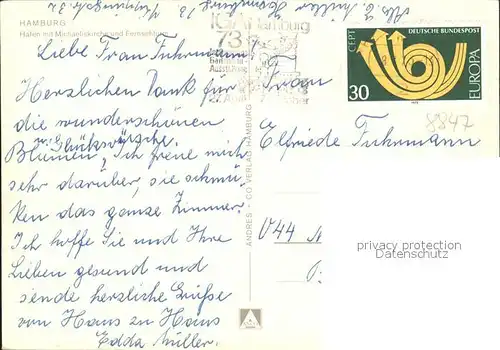 HAMBURG
Hafen mit Michaeliskirche und Fernsehturm
Liebe Frau Fuhrmann,
Herzlichen Dank für
die wunderschönen
u. Glückwünsche.
Blumen, Ich freue mich
sehr darüber, sie schmü-
ken das ganze Zimmer.
Ich hoffe Sie und Ihre
Lieben gesund und
sende herzliche Grüße
von Haus zu Haus
Edda Müller.
ANDRES + CO VERLAG HAMBURG
Hamburg
73
CEPT
DEUTSCHE BUNDESPOST
EUROPA
30
8847
Frau
Elfriede Fuhrmann
V44
privacy protection
Datenschutz